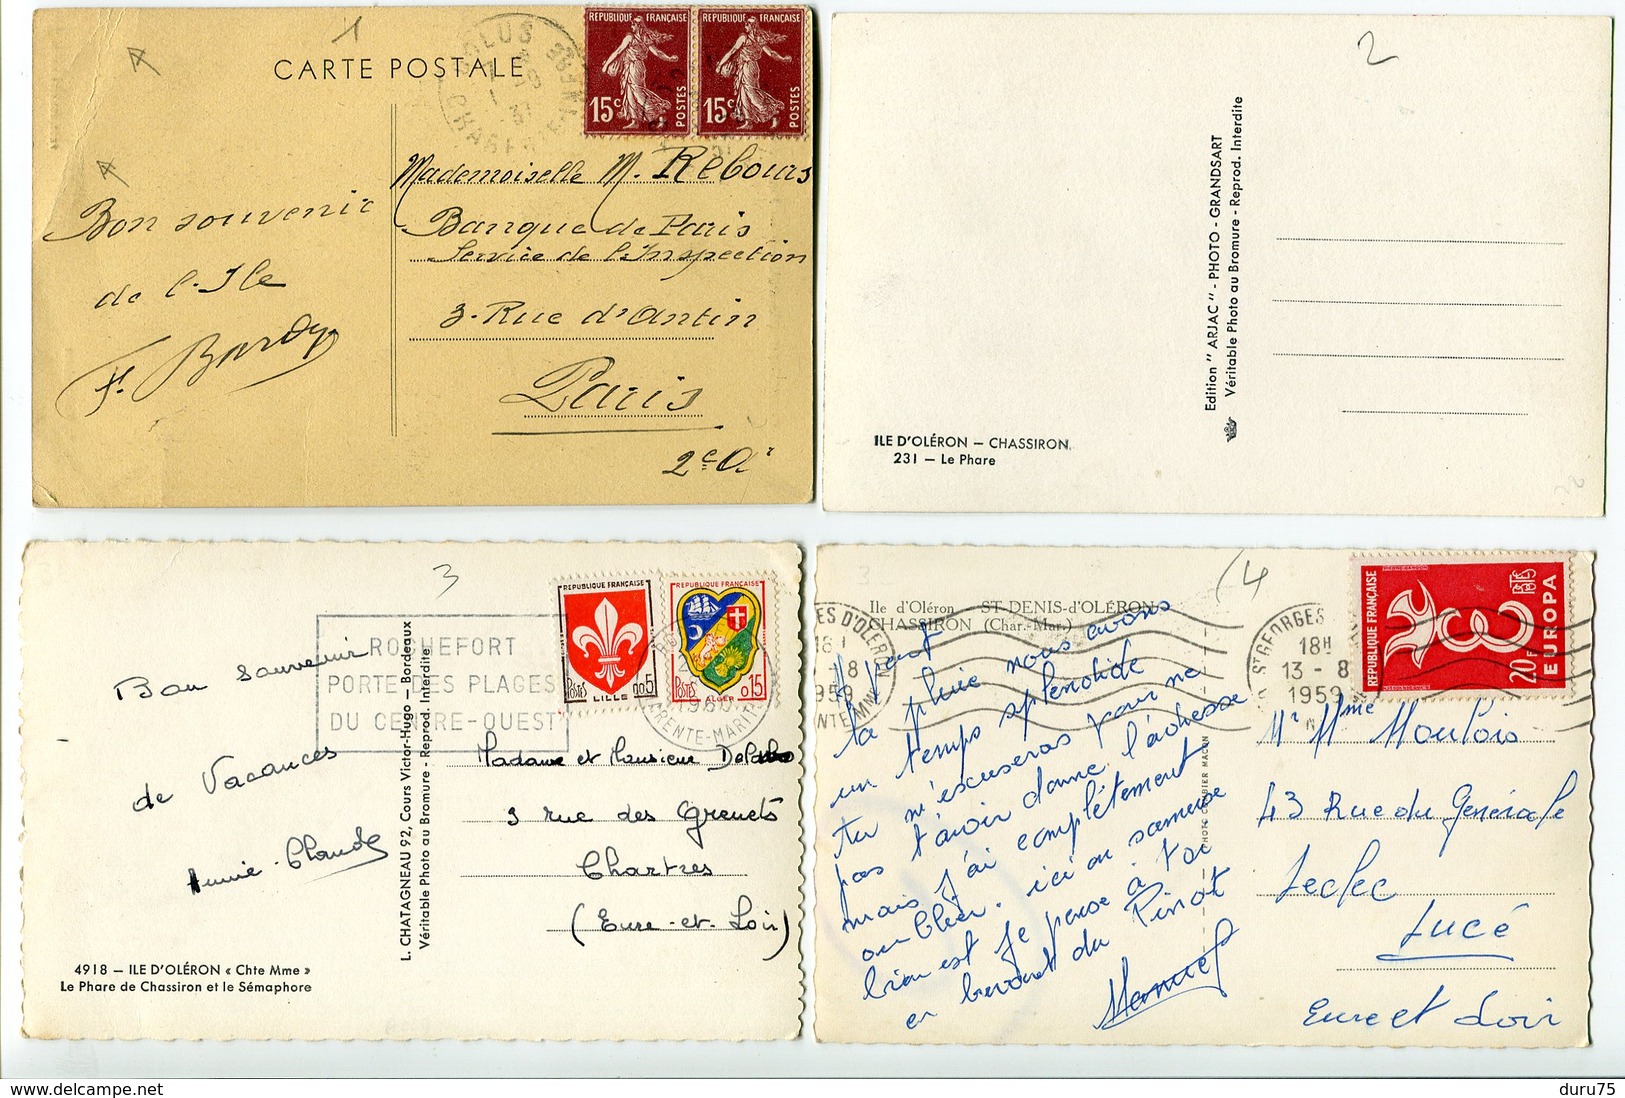 1
CARTE POSTALE
REPUBLIQUE FRANÇAISE
15c
POSTES
REPUBLIQUE FRANÇAISE
15c
POSTES
Mademoiselle M. Rebours
Banque de Paris
Service de l'Inspection
3 - Rue d'Antin
Paris
2e Ar
Bon souvenir
de l'Ile
F. Bardy
2
Edition " ARJAC " - PHOTO - GRANDSART
Véritable Photo au Bromure - Reprod. Interdite
ILE D'OLÉRON — CHASSIRON
231 — Le Phare
3
REPUBLIQUE FRANÇAISE
POSTES
LILLE
0,05
REPUBLIQUE FRANÇAISE
POSTES
ALGER
0,15
ROCHEFORT
PORTE DES PLAGES
DU CENTRE-OUEST
Bon souvenir
de Vacances
Annie-Claude
Madame et Monsieur
3 rue des Grenets
Chartres
(Eure-et-Loir)
L. CHATAGNEAU 92, Cours Victor-Hugo — Bordeaux
Véritable Photo au Bromure - Reprod. Interdite
4918 — ILE D'OLÉRON « Chte Mme »
Le Phare de Chassiron et le Sémaphore
4
Ile d'Oléron ST-DENIS-d'OLÉRON
CHASSIRON (Char.-Mar.)
ST GEORGES
18H
13 - 8
1959
REPUBLIQUE FRANÇAISE
20F
EUROPA
la pluie nous avons
un temps splendide
Tu m'excuseras pour ne
pas t'avoir donné l'adresse
mais j'ai complètement
oublier. ici on s'amuse
bien et je pense à toi
en buvant du Pinot
Mr Mme
43 Rue du Générale
Leclec
Lucé
Eure et Loir
duru75